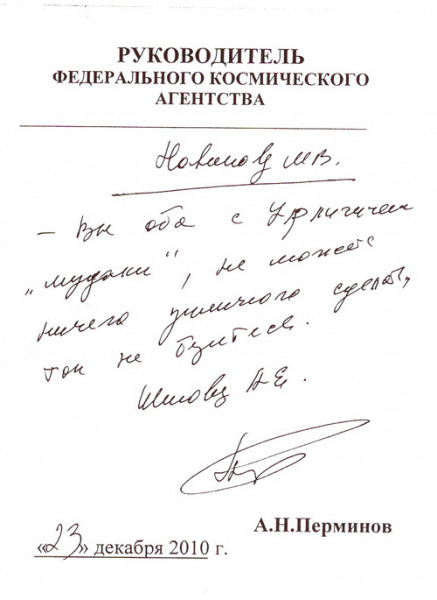 РУКОВОДИТЕЛЬ
ФЕДЕРАЛЬНОГО КОСМИЧЕСКОГО
АГЕНТСТВА
М.В.
– Вы оба с Урличичем
„мудаки“, не можете
ничего приличного сделать,
так не
Шилову А.Е.
А.Н.Перминов
«23» декабря 2010 г.